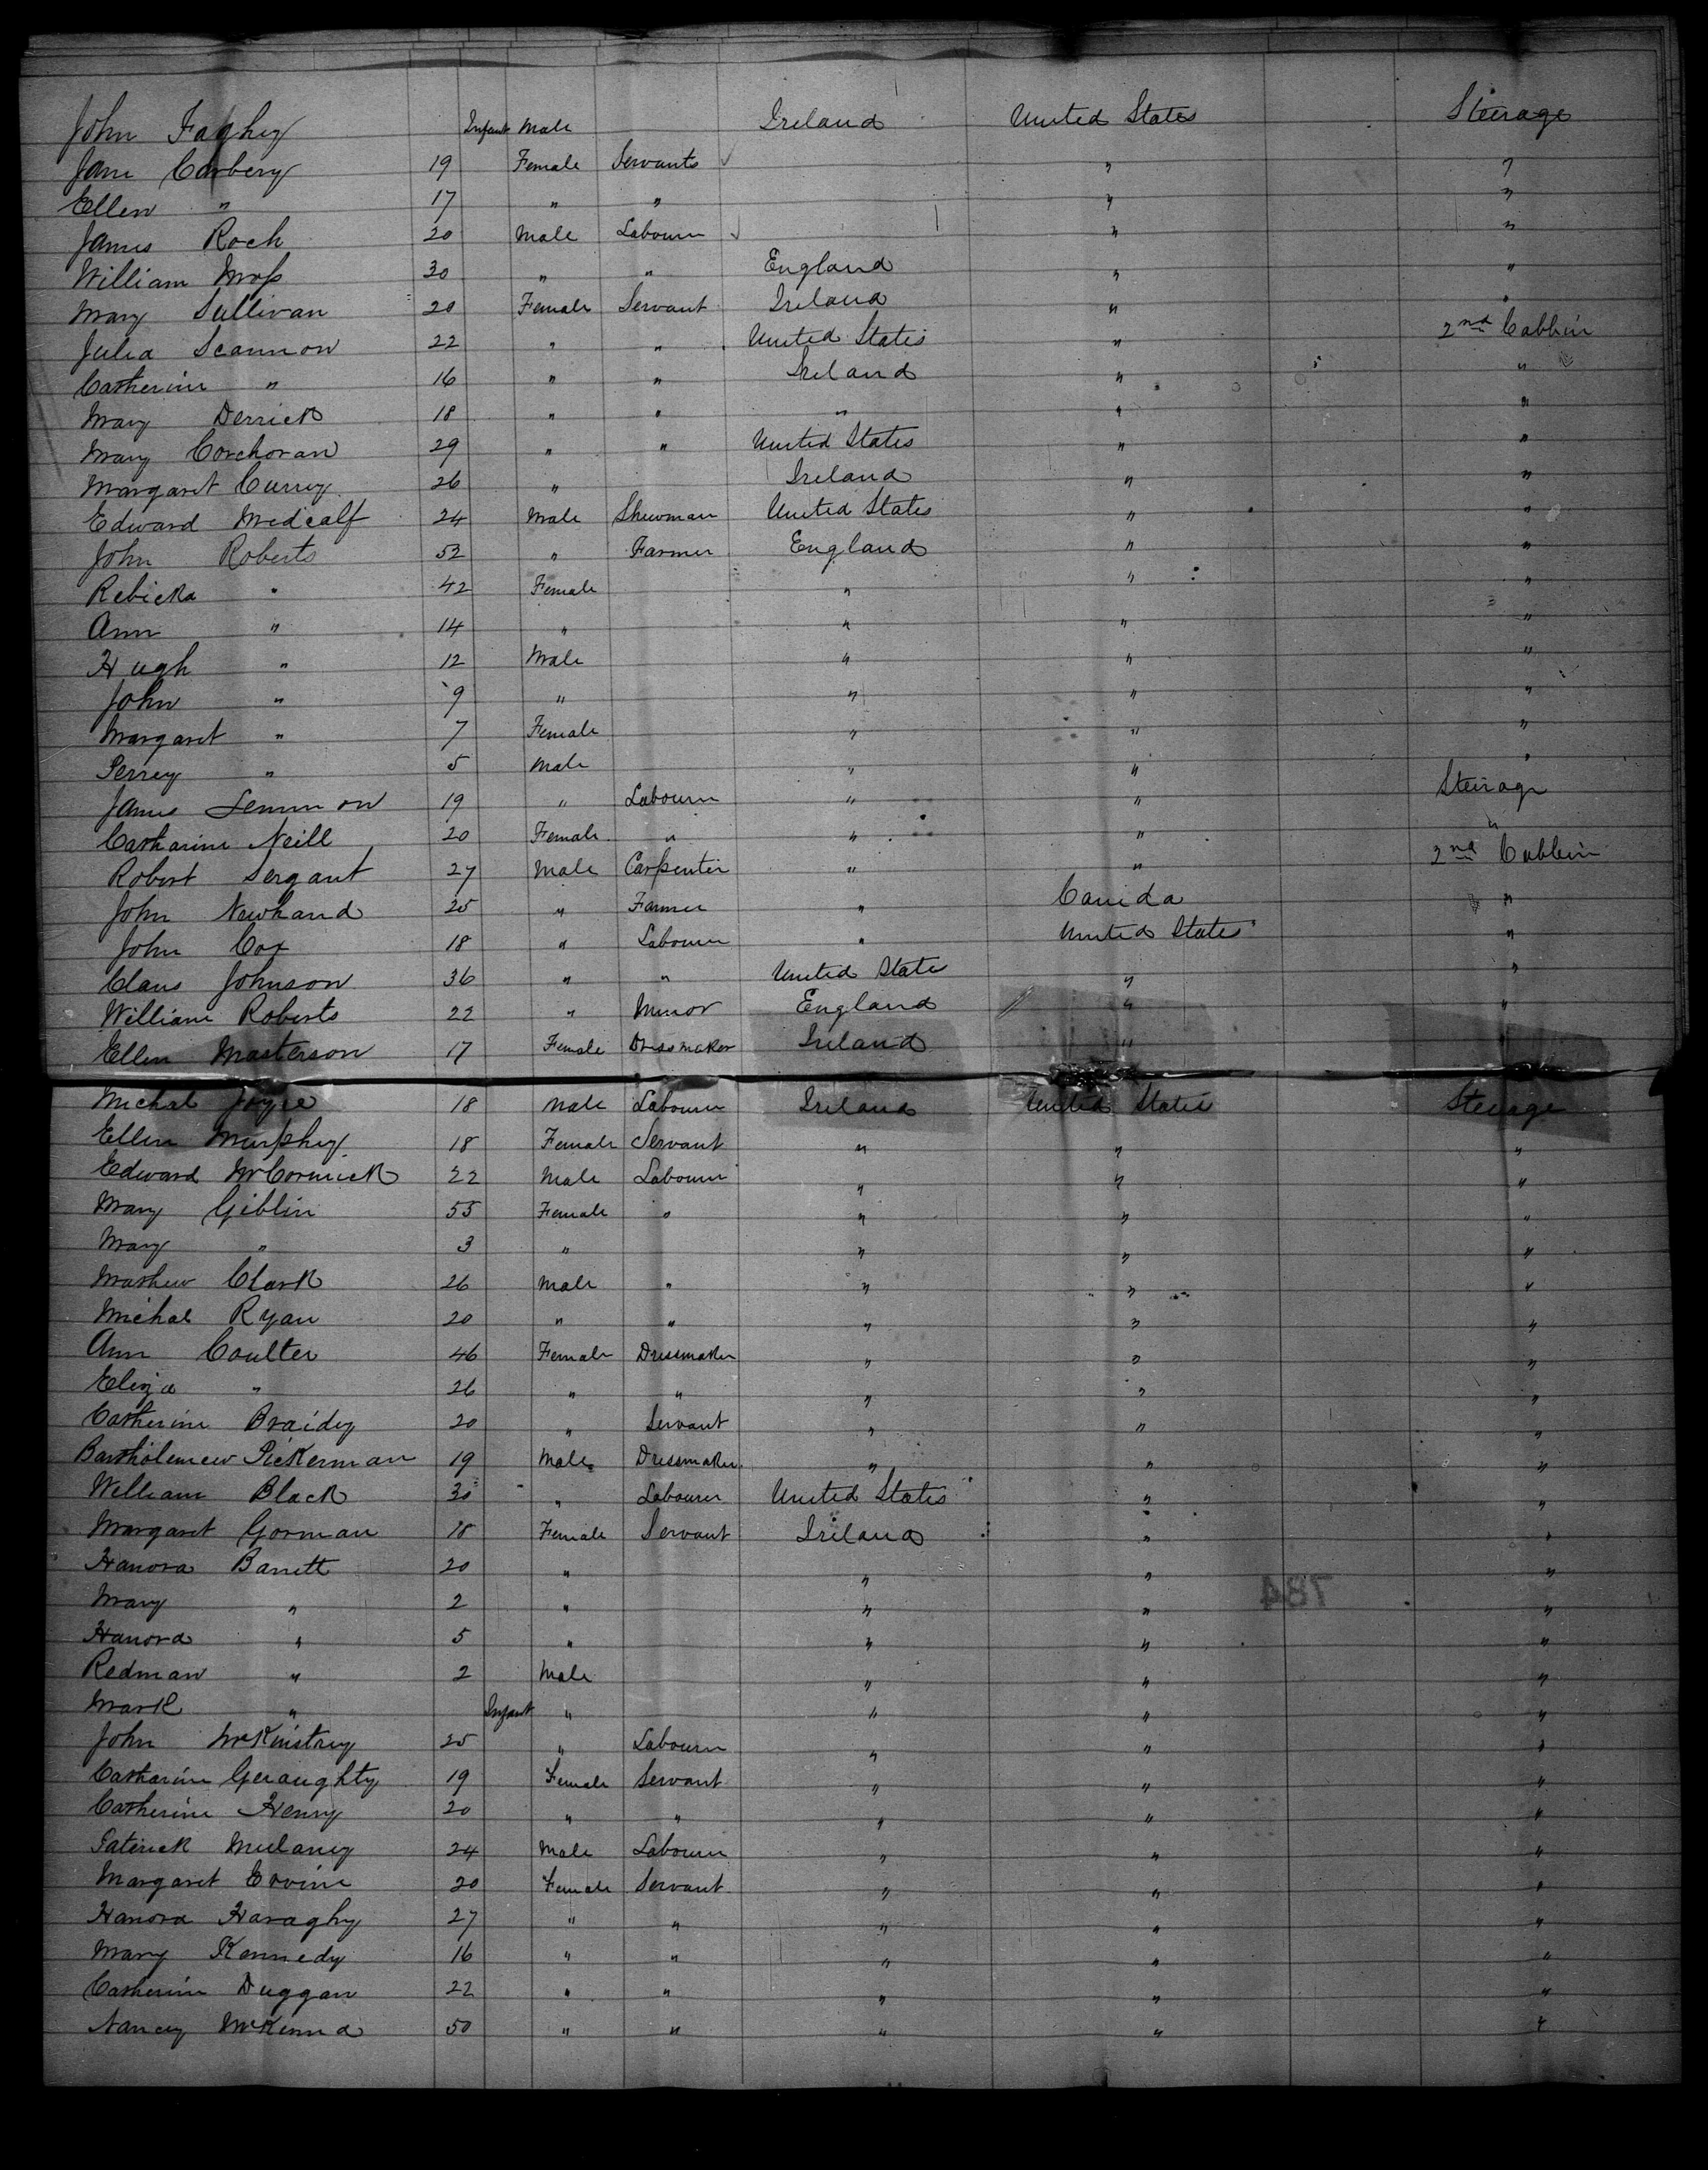 John Faghey Infant Male Ireland United States Steirage
Jane Carbery 19 Female Servants " "
Ellen " 17 " " " "
James Roch 20 Male Labourer " "
William Moss 30 " " England " "
Mary Sullivan 20 Female Servant Ireland " "
Julia Scannon 22 " " United States " 2nd Cabbin
Catherine " 16 " " Ireland " "
Mary Derrick 18 " " " " "
Mary Corchoran 29 " " United States " "
Margaret Currey 26 " Ireland " "
Edward Medcalf 24 Male Shewman United States " "
John Roberts 52 " Farmer England " "
Rebicka " 42 Female " " "
Ann " 14 " " " "
Hugh " 12 Male " " "
John " 9 " " " "
Margaret " 7 Female " " "
Perrey " 5 Male " " "
James Lemmon 19 " Labourer " " Steirage
Catharine Neill 20 Female " " " "
Robert Sergant 27 Male Carpenter " " 2nd Cabbin
John Newhand 25 " Farmer " Canida "
John Cox 18 " Labourer " United States "
Claus Johnson 36 " " United State " "
William Roberts 22 " Minor England " "
Ellen Masterson 17 Female Dressmaker Ireland " "
Michal Joyce 18 Male Labourer Ireland United States Steirage
Ellen Murphey 18 Female Servant " " "
Edward McCormick 22 Male Labourer " " "
Mary Giblin 55 Female " " " "
Mary " 3 " " " "
Mathew Clark 26 Male " " " "
Michal Ryan 20 " " " " "
Ann Coulter 46 Female Dressmaker " " "
Eliza " 26 " " " " "
Catherine Braidey 20 " Servant " " "
Bartholemew Pickerman 19 Male Dressmaker " " "
William Black 30 " Labourer United States " "
Margaret Gorman 18 Female Servant Ireland " "
Hanora Barrett 20 " " " "
Mary " 2 " " " "
Hanora " 5 " " " "
Redman " 2 Male " " "
Mark " Infant " " " "
John McKinstrey 25 " Labourer " " "
Catharine Geraughty 19 Female Servant " " "
Catherine Henry 20 " " " " "
Paterick Mulaney 24 Male Labourer " " "
Margaret Ervine 20 Female Servant " " "
Hanora Haraghy 27 " " " " "
Mary Kennedy 16 " " " " "
Catherine Duggan 22 " " " " "
Nancy McKenna 50 " " " " "
784